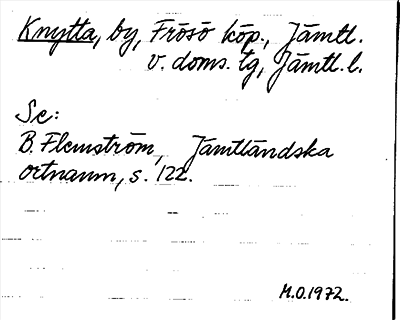 Knytta, by, Frösö köp., Jämtl.
v. doms. tg, Jämtl. l.
Se:
B. Flemström, Jämtländska
ortnamn, s. 122.
M.O.1972.